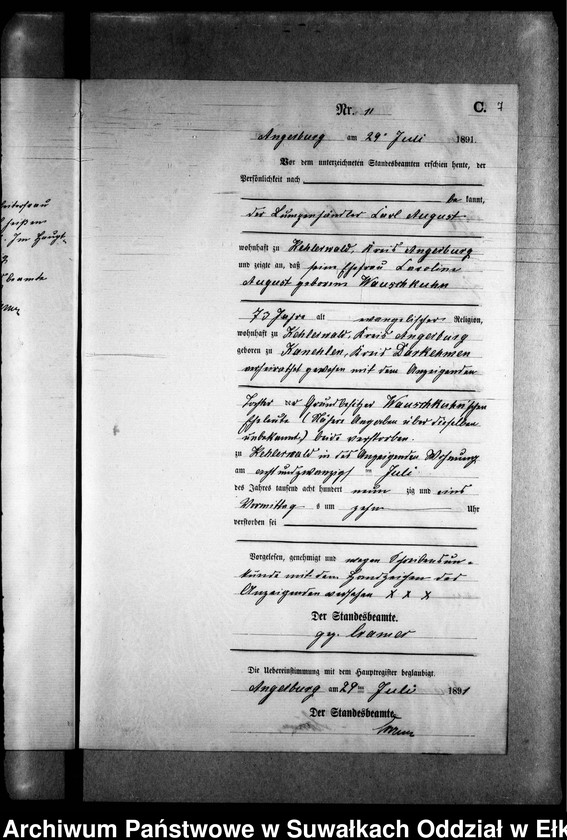 Nr. 11
C. 7
Angerburg am 29 Juli 1891.
Vor dem unterzeichneten Standesbeamten erschien heute, der
Persönlichkeit nach
be kannt,
der Lumpenhändler Carl August
wohnhaft zu Kehlerwald, Kreis Angerburg
und zeigte an, daß seine Ehefrau Caroline
August geborene Wauschkuhn
73 Jahre alt evangelischer Religion,
wohnhaft zu Kehlerwald, Kreis Angerburg
geboren zu Kreis Darkehmen
verheirathet gewesen mit dem Anzeigenden
Tochter der Grundbesitzer Wauschkuhn'schen
Eheleute (Nähere Angaben über dieselben
unbekannt,) beide verstorben.
zu Kehlerwald in des Anzeigenden Wohnung
am acht und zwanzigsten Juli
des Jahres tausend acht hundert neun zig und eins
Vormittag s um zehn Uhr
verstorben sei
Vorgelesen, genehmigt und wegen Schreibensun-
kunde mit dem Handzeichen des
Anzeigenden versehen X X X
Der Standesbeamte.
gez. Cramer
Die Uebereinstimmung mit dem Hauptregister beglaubigt.
Angerburg am 29 ten Juli 1891
Der Standesbeamte
Archiwum Państwowe w Suwałkach Oddział w Ełk